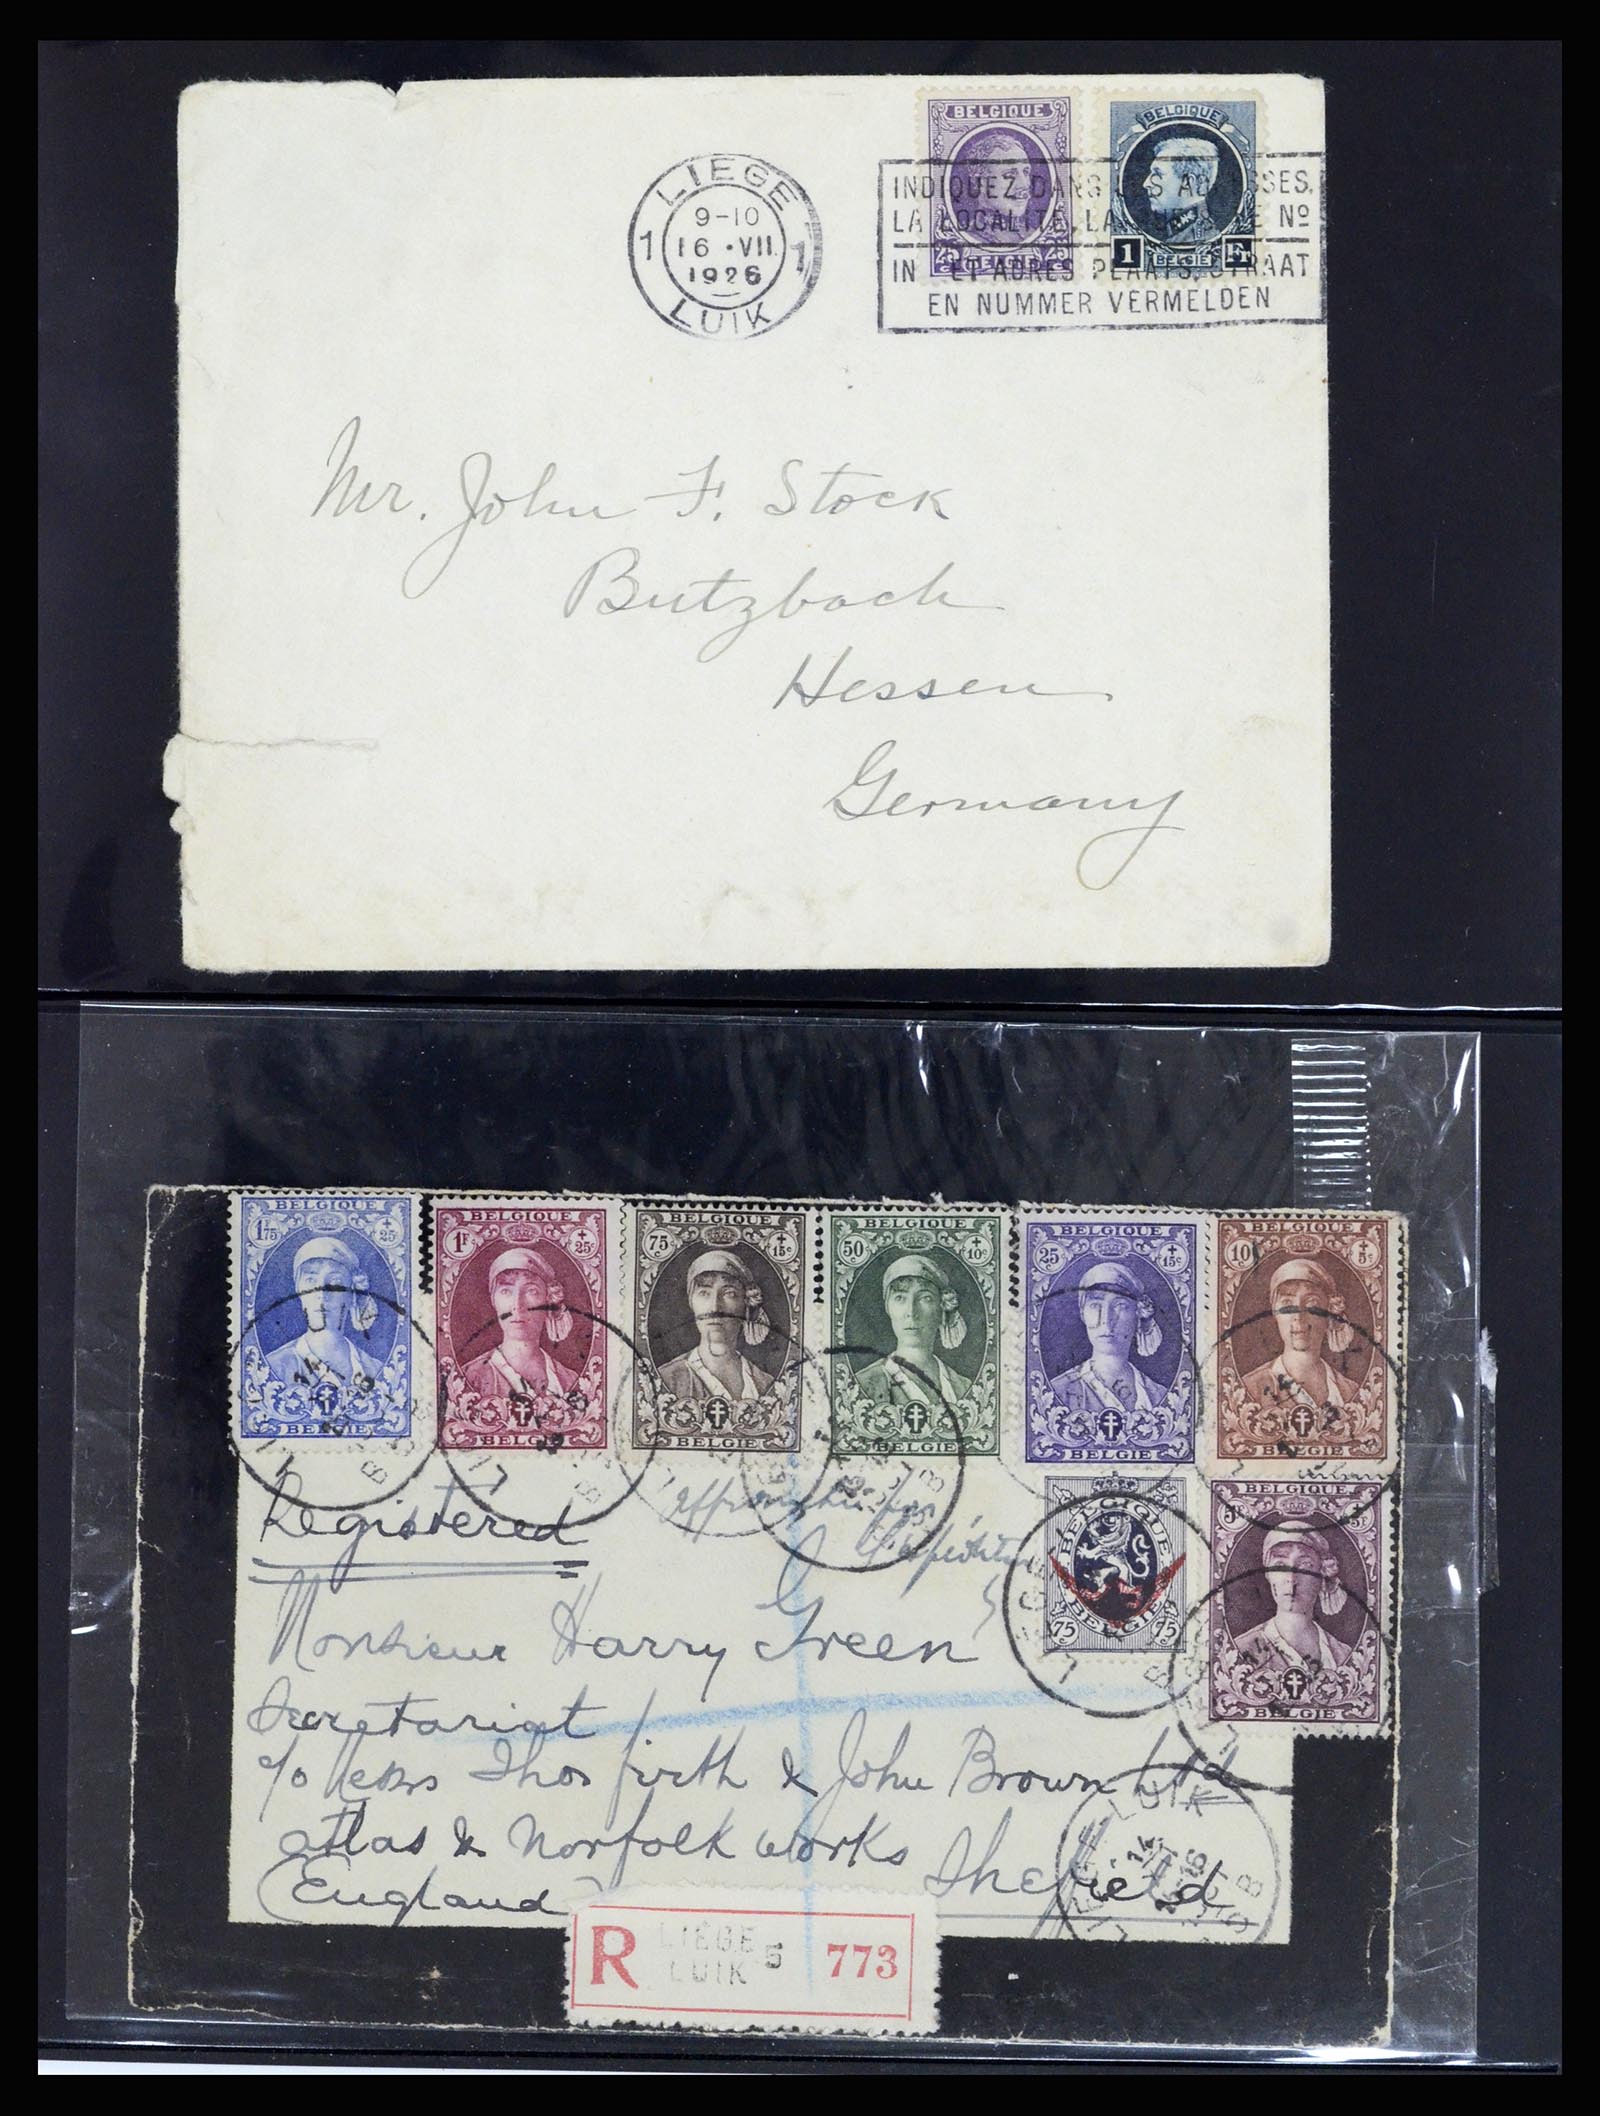 BELGIQUE
25 c BELGIË 25 c
BELGIQUE
1 BELGIË Fr
LIEGE
1 9-10 1
16 • VII.
1926
LUIK
INDIQUEZ DANS LES ADRESSES,
LA LOCALITE, LA RUE, LE Nº
IN ET ADRES PLAATS, STRAAT
EN NUMMER VERMELDEN
Mr. John F. Stock
Butzbach
Hessen
Germany
BELGIQUE
1F75 + 25c
BELGIË
BELGIQUE
1F + 25c
BELGIË
BELGIQUE
75c + 15c
BELGIË
BELGIQUE
50c + 10c
BELGIË
BELGIQUE
25c + 15c
BELGIË
BELGIQUE
10c + 5c
BELGIË
BELGIQUE
75c BELGIE 75c
BELGIQUE
5F + 5F
BELGIE
Registered
Monsieur Harry Green
Secretariat
c/o Messrs Thos firth & John Brown Ltd
atlas & Norfolk works Sheffield
(England)
LIEGE LUIK
14
R LIÈGE 5 773
LUIK